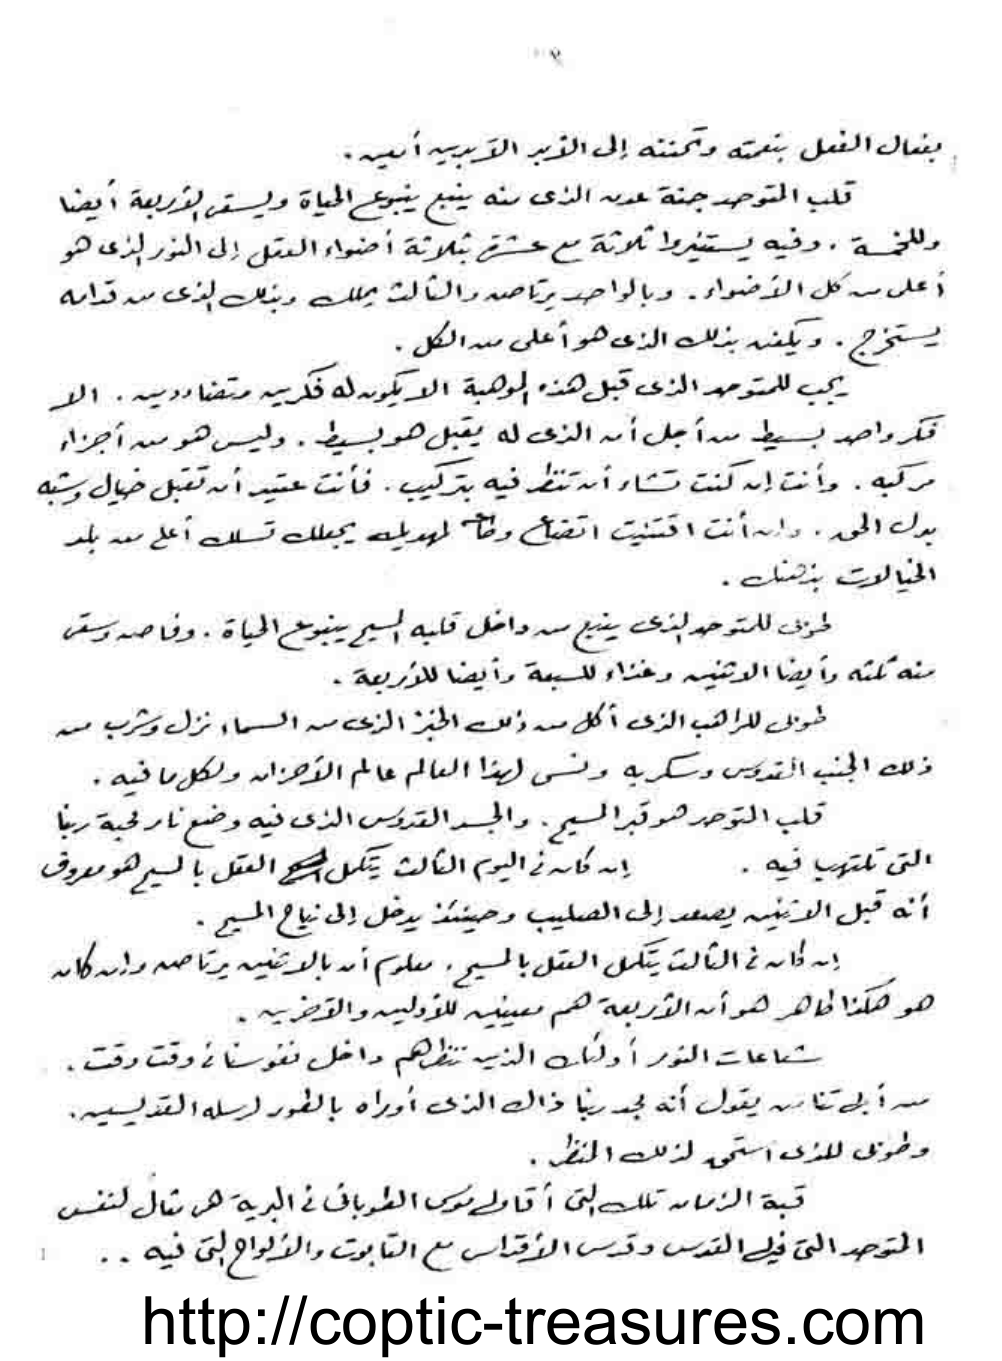 ٧
بفعال الفعل بنعمته وتحننه إلى الأبد الآبدين أمين .
قلب المتوحد جنة عدن الذى منه ينبع ينبوع الحياة ويسقى الأربعة أيضا
وللخمسة . وفيه يستنيروا ثلاثة مع عشرة بثلاثة أضواء العقل إلى النور الذى هو
أعلى من كل الأضواء . وبالواحد يرتاض والثالث يملك وبذلك الذى من قدامه
يستخرج . ويكفن بذلك الذى هو أعلى من الكل .
يجب للمتوحد الذى قبل هذه الموهبة الا يكون له فكرين متضاددين . الا
فكر واحد بسيط من أجل أن الذى له يقبل هو بسيط . وليس هو من أجزاء
مركبه . وأنت إن كنت تشاء أن تنظر فيه بتركيب . فأنت عتيد أن تقبل خيال وشبه
بدل الحق . وإن أنت اقتنيت اتضاع لمهديك يجعلك تسلك أعلى من بلد
الخيالات بذهنك .
طوبى للمتوحد الذى ينبع من داخل قلبه المسيح ينبوع الحياة . وفاض وسقى
منه ثلثه وأيضا الاثنين وغذاء للسبعة وأيضا للأربعة .
طوبى للراهب الذى أكل من ذلك الخبز الذى من السماء نزل وشرب من
ذلك الجنب القدوس وسكر به ونسى لهذا العالم عالم الأحزان ولكل ما فيه .
قلب المتوحد هو قبر المسيح . والجسد القدوس الذى فيه وضع نار محبة ربنا
التى تلتهب فيه . إن كان فى اليوم الثالث يتكمل العقل بالمسيح هو معروف
أنه قبل الاثنين يصعد إلى الصليب وحينئذ يدخل إلى نياح المسيح .
إن كان فى الثالث يتكمل العقل بالمسيح . معلوم أن بالاثنين يرتاض وإن كان
هو هكذا ظاهر هو أن الأربعة هم معينين للأولين والآخرين .
شعاعات النور أولئك الذين ننظرهم داخل نفوسنا فى وقت وقت .
من أبى يقول أنه مجد ربنا ذاك الذى أوراه بالطور لرسله القديسين .
وطوبى للذى استحق لذلك المنظر .
قبة الزمان تلك التى أقام موسى الطوبانى فى البرية هى مثال لنفس
المتوحد التى فيها القدس وقدس الأقداس مع التابوت والألواح التى فيه . .
http://coptic-treasures.com